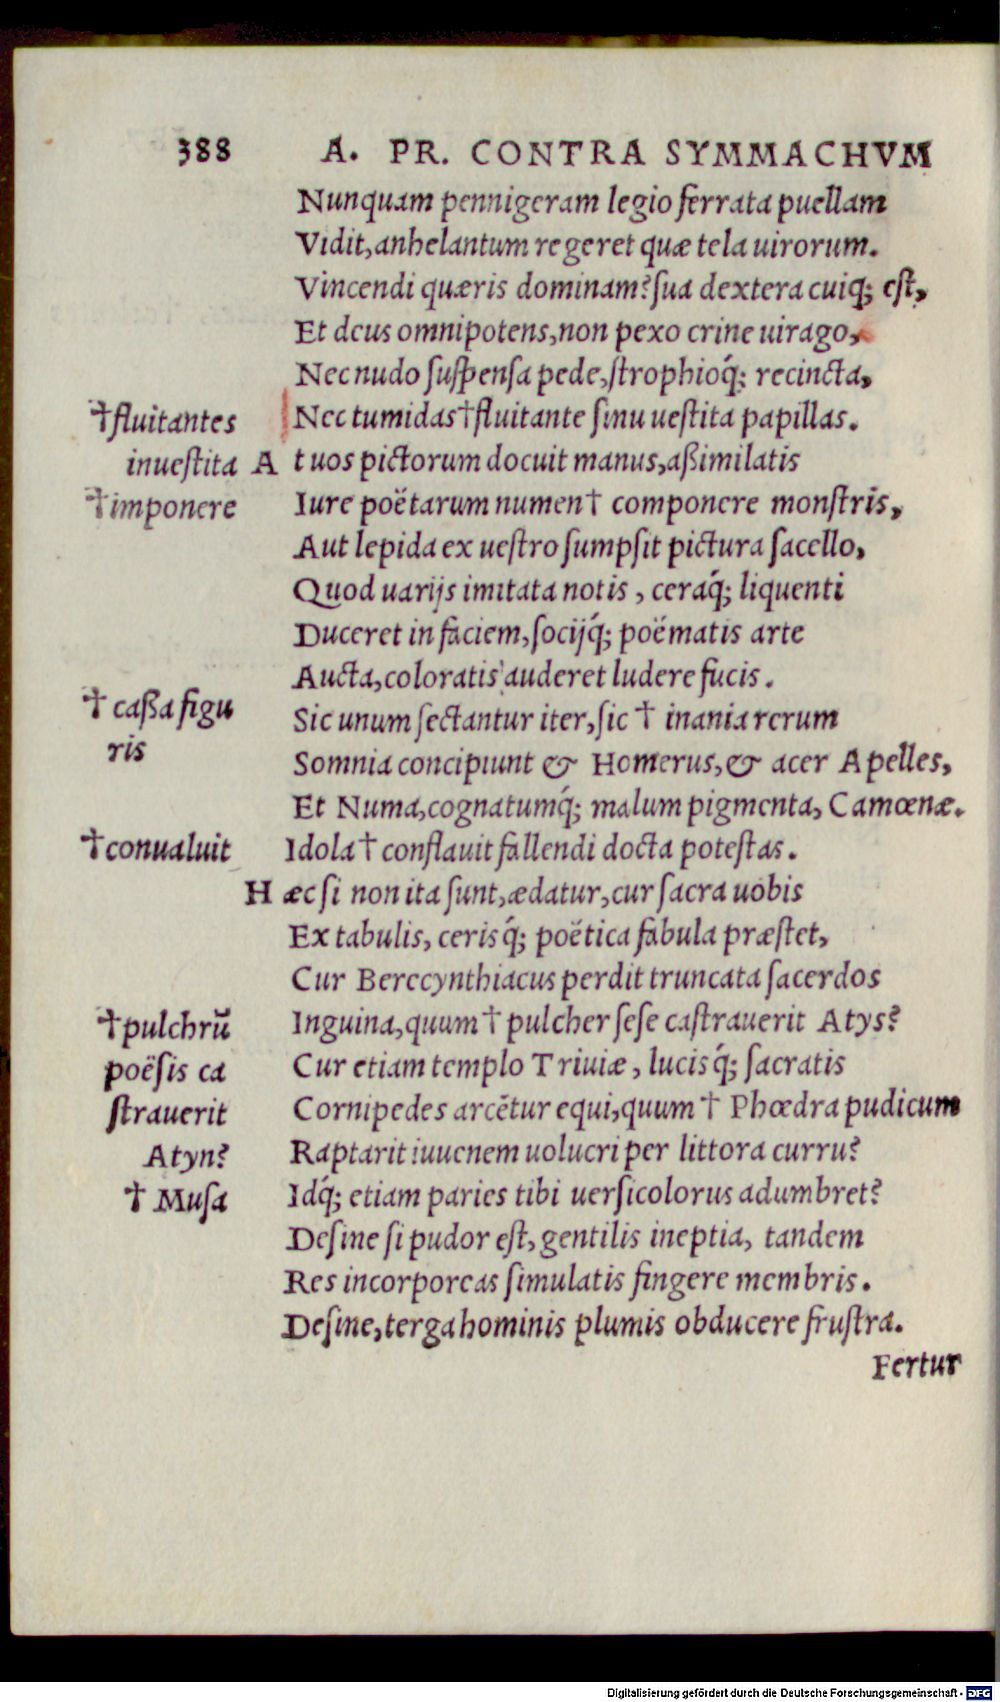 388 A. PR. CONTRA SYMMACHVM
Nunquam pennigeram legio ferrata puellam
Vidit, anhelantum regeret quæ tela uirorum.
Vincendi quæris dominam? sua dextera cuiq; est,
Et deus omnipotens, non pexo crine uirago,
Nec nudo suspensa pede, strophioq́; recincta,
†fluitantes Nec tumidas †fluitante sinu uestita papillas.
inuestita A t uos pictorum docuit manus, aßimilatis
†imponere Iure poëtarum numen† componere monstris,
Aut lepida ex uestro sumpsit pictura sacello,
Quod uarijs imitata notis, ceraq́; liquenti
Duceret in faciem, socijq́; poëmatis arte
Aucta, coloratis auderet ludere fucis.
† caßa figu Sic unum sectantur iter, sic † inania rerum
ris Somnia concipiunt & Homerus, & acer Apelles,
Et Numa, cognatumq́; malum pigmenta, Camœnæ.
†conualuit Idola† conflauit fallendi docta potestas.
H æc si non ita sunt, ædatur, cur sacra uobis
Ex tabulis, cerisq́; poëtica fabula præstet,
Cur Berecynthiacus perdit truncata sacerdos
†pulchrũ Inguina, quum † pulcher sese castrauerit Atys?
poësis ca Cur etiam templo Triuiæ, lucisq́; sacratis
strauerit Cornipedes arcẽtur equi, quum † Phœdra pudicum
Atyn? Raptarit iuuenem uolucri per littora curru?
† Musa Idq́; etiam paries tibi uersicolorus adumbret?
Desine si pudor est, gentilis ineptia, tandem
Res incorporeas simulatis fingere membris.
Desine, terga hominis plumis obducere frustra.
Fertur
Digitalisierung gefördert durch die Deutsche Forschungsgemeinschaft - DFG